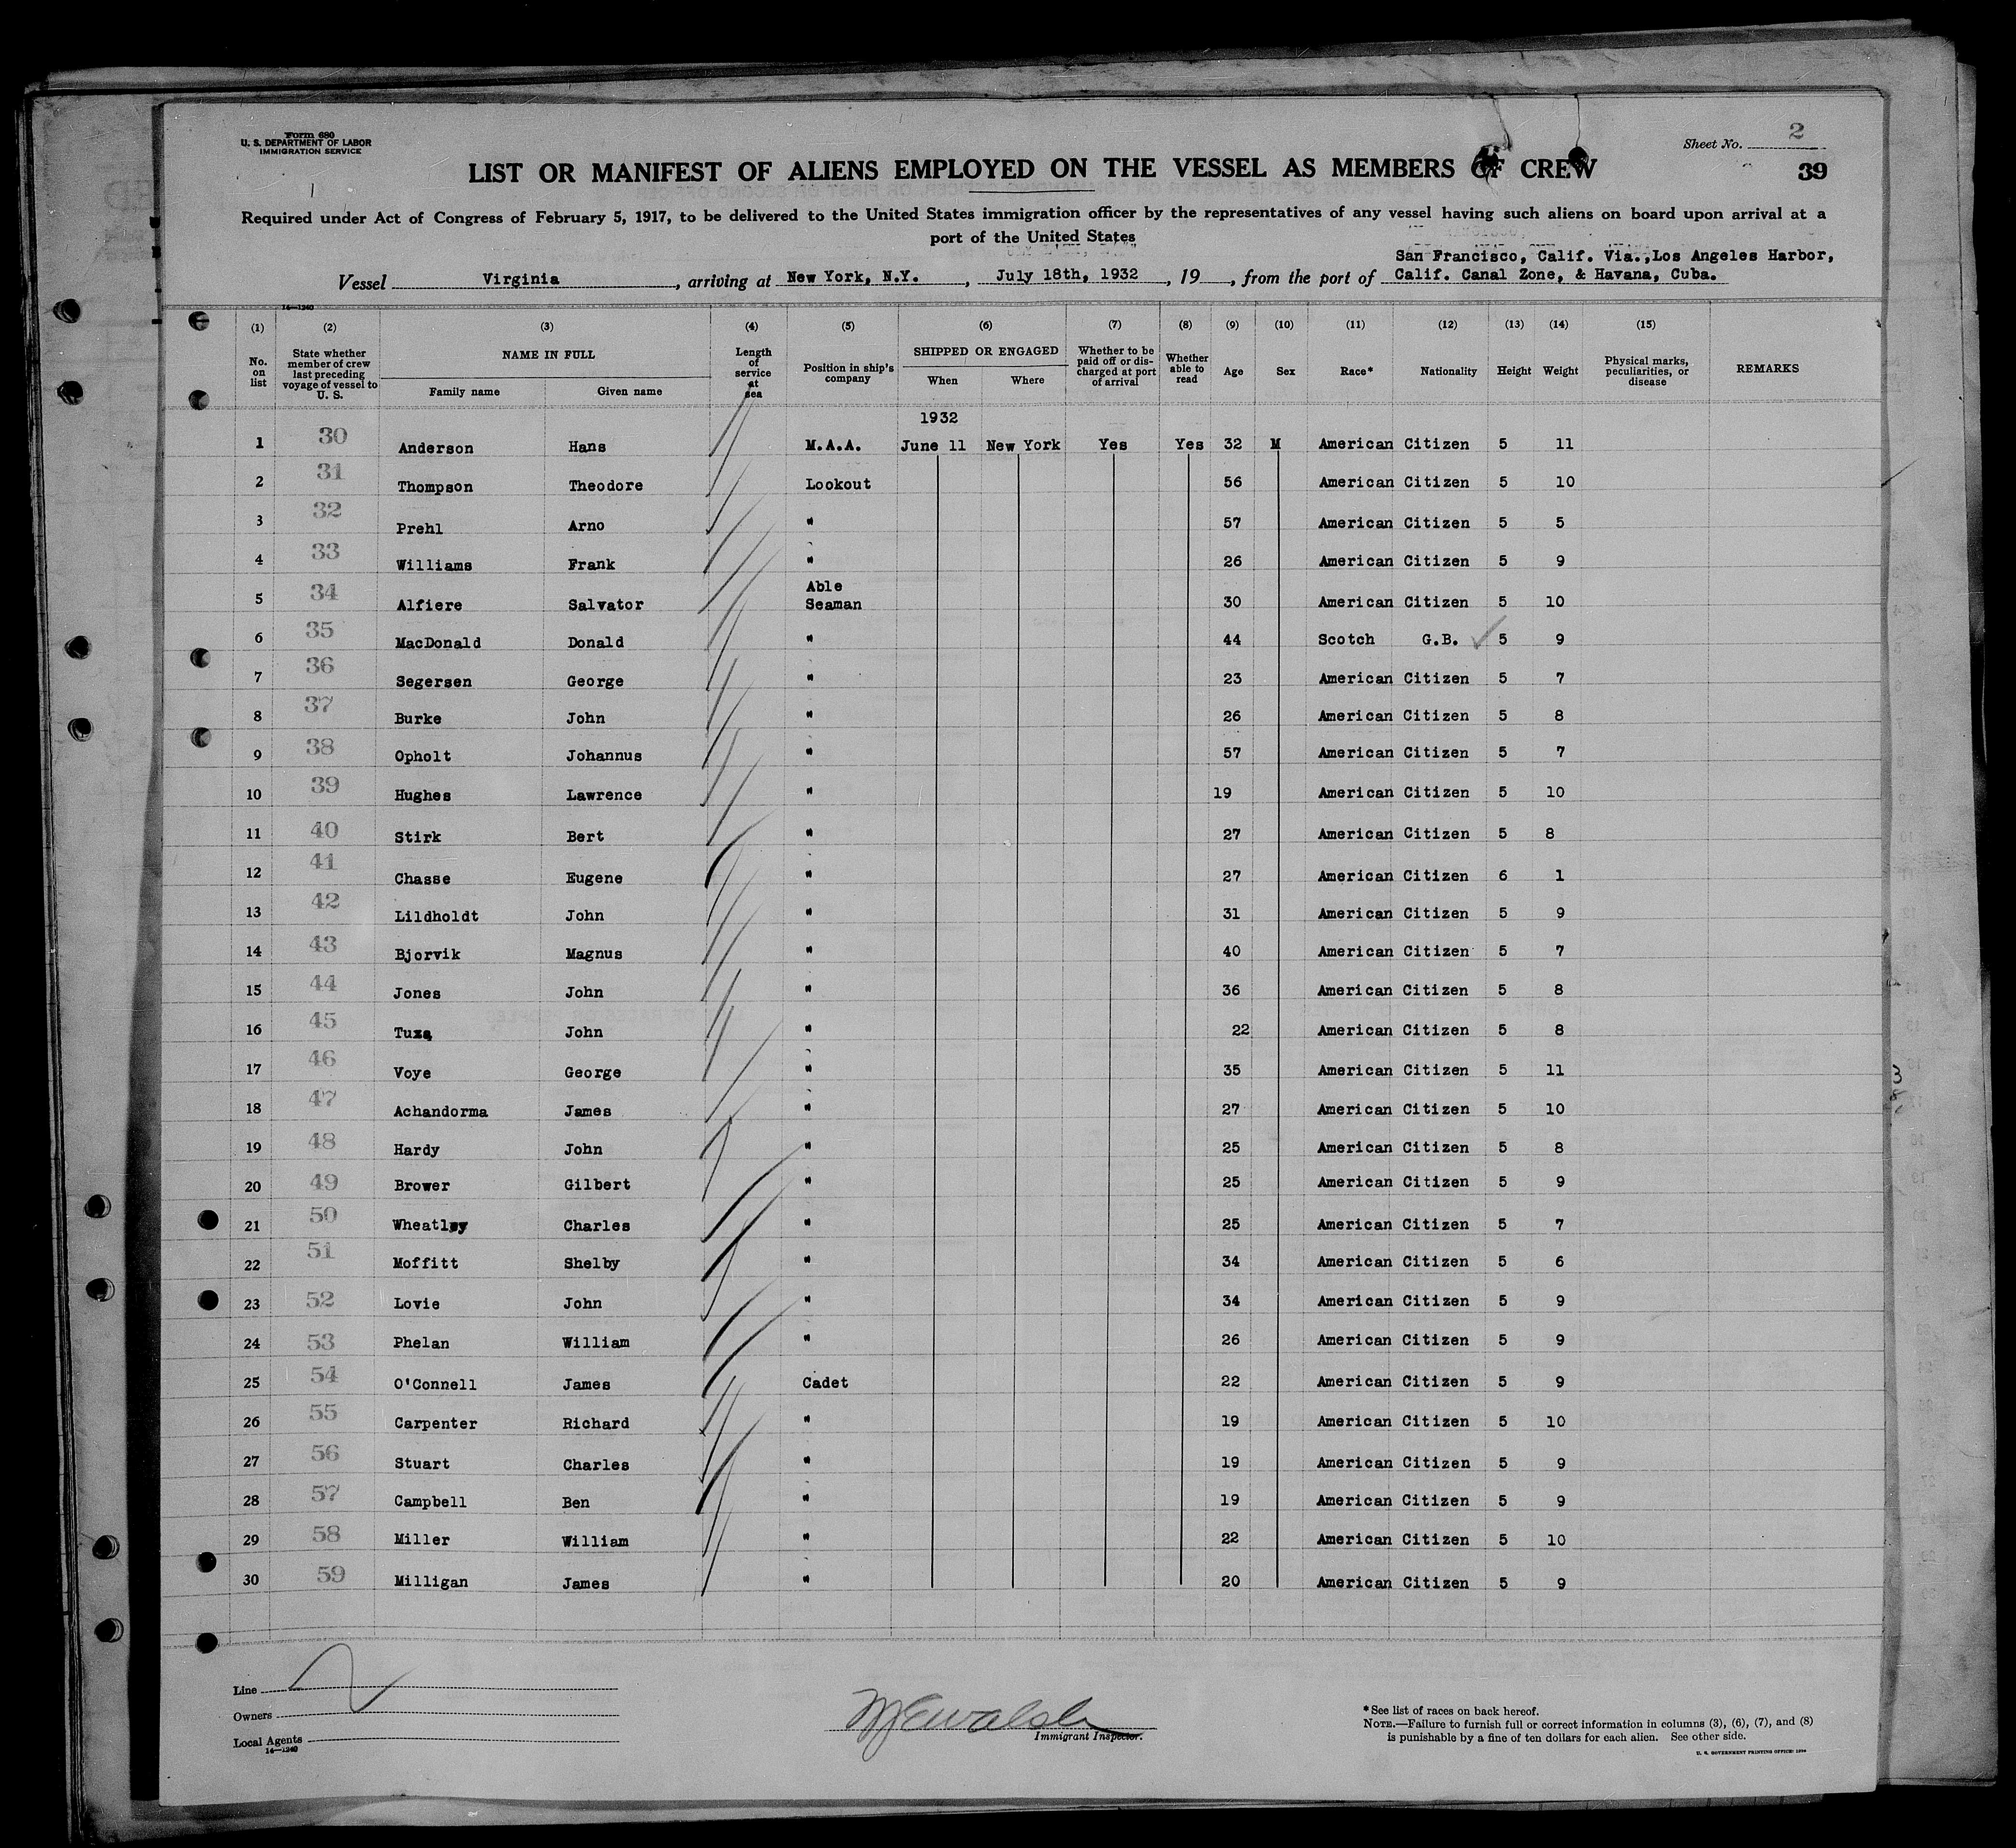 Form 680
U. S. DEPARTMENT OF LABOR
IMMIGRATION SERVICE
Sheet No. 2
LIST OR MANIFEST OF ALIENS EMPLOYED ON THE VESSEL AS MEMBERS OF CREW
39
Required under Act of Congress of February 5, 1917, to be delivered to the United States immigration officer by the representatives of any vessel having such aliens on board upon arrival at a
port of the United States
San Francisco, Calif. Via.,Los Angeles Harbor,
Vessel Virginia, arriving at New York, N.Y., July 18th, 1932, 19 , from the port of Calif. Canal Zone, & Havana, Cuba.
14—1240
(1) (2) (3) (4) (5) (6) (7) (8) (9) (10) (11) (12) (13) (14) (15)
No. on list State whether member of crew last preceding voyage of vessel to U. S. NAME IN FULL Family name Given name Length of service at sea Position in ship's company SHIPPED OR ENGAGED When Where Whether to be paid off or discharged at port of arrival Whether able to read Age Sex Race* Nationality Height Weight Physical marks, peculiarities, or disease REMARKS
1932
1 30 Anderson Hans M.A.A. June 11 New York Yes Yes 32 M American Citizen 5 11
2 31 Thompson Theodore Lookout 56 American Citizen 5 10
3 32 Prehl Arno " 57 American Citizen 5 5
4 33 Williams Frank " 26 American Citizen 5 9
5 34 Alfiere Salvator Able Seaman 30 American Citizen 5 10
6 35 MacDonald Donald " 44 Scotch G.B. 5 9
7 36 Segersen George " 23 American Citizen 5 7
8 37 Burke John " 26 American Citizen 5 8
9 38 Opholt Johannus " 57 American Citizen 5 7
10 39 Hughes Lawrence " 19 American Citizen 5 10
11 40 Stirk Bert " 27 American Citizen 5 8
12 41 Chasse Eugene " 27 American Citizen 6 1
13 42 Lildholdt John " 31 American Citizen 5 9
14 43 Bjorvik Magnus " 40 American Citizen 5 7
15 44 Jones John " 36 American Citizen 5 8
16 45 John " 22 American Citizen 5 8
17 46 Voye George " 35 American Citizen 5 11
18 47 Achandorma James " 27 American Citizen 5 10
19 48 Hardy John " 25 American Citizen 5 8
20 49 Brower Gilbert " 25 American Citizen 5 9
21 50 Wheatley Charles " 25 American Citizen 5 7
22 51 Moffitt Shelby " 34 American Citizen 5 6
23 52 Lovie John " 34 American Citizen 5 9
24 53 Phelan William " 26 American Citizen 5 9
25 54 O'Connell James Cadet 22 American Citizen 5 9
26 55 Carpenter Richard " 19 American Citizen 5 10
27 56 Stuart Charles " 19 American Citizen 5 9
28 57 Campbell Ben " 19 American Citizen 5 9
29 58 Miller William " 22 American Citizen 5 10
30 59 Milligan James " 20 American Citizen 5 9
Line
Owners
Local Agents
14—1240
Immigrant Inspector.
*See list of races on back hereof.
NOTE.—Failure to furnish full or correct information in columns (3), (6), (7), and (8)
is punishable by a fine of ten dollars for each alien. See other side.
U. S. GOVERNMENT PRINTING OFFICE: